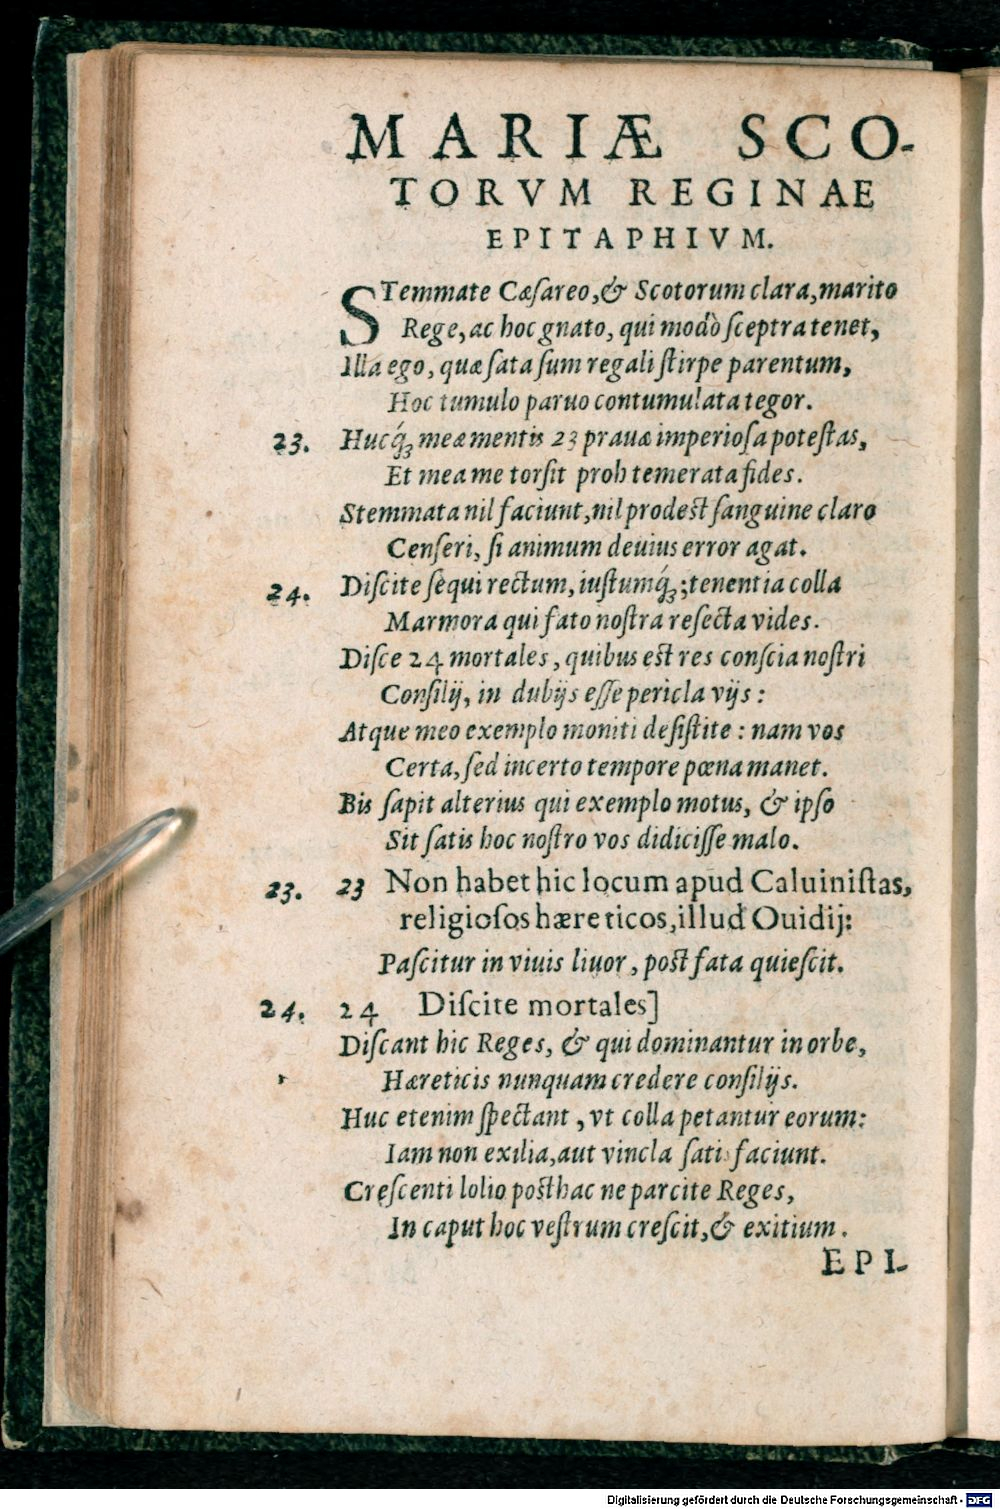 MARIÆ SCO-
TORVM REGINAE
EPITAPHIVM.
STemmate Cæſareo, & Scotorum clara, marito
Rege, ac hoc gnato, qui modò ſceptra tenet,
Illa ego, quæ ſata ſum regali ſtirpe parentum,
Hoc tumulo paruo contumulata tegor.
23. Hucq́ꝫ meæ mentis 23 prauæ imperioſa poteſtas,
Et mea me torſit proh temerata fides.
Stemmata nil faciunt, nil prodeſt ſanguine claro
Cenſeri, ſi animum deuius error agat.
24. Diſcite ſequi rectum, iuſtumq́ꝫ; tenentia colla
Marmora qui fato noſtra reſecta vides.
Diſce 24 mortales, quibus eſt res conſcia noſtri
Conſilij, in dubijs eſſe pericla vijs:
Atque meo exemplo moniti deſiſtite: nam vos
Certa, ſed incerto tempore pœna manet.
Bis ſapit alterius qui exemplo motus, & ipſo
Sit ſatis hoc noſtro vos didiciſſe malo.
23. 23 Non habet hic locum apud Caluiniſtas,
religioſos hæreticos, illud Ouidij:
Paſcitur in viuis liuor, poſt fata quieſcit.
24. 24 Diſcite mortales]
Diſcant hic Reges, & qui dominantur in orbe,
Hæreticis nunquam credere conſilijs.
Huc etenim ſpectant, vt colla petantur eorum:
Iam non exilia, aut vincla ſati faciunt.
Creſcenti lolio poſthac ne parcite Reges,
In caput hoc veſtrum creſcit, & exitium.
EPI-
Digitalisierung gefördert durch die Deutsche Forschungsgemeinschaft - DFG